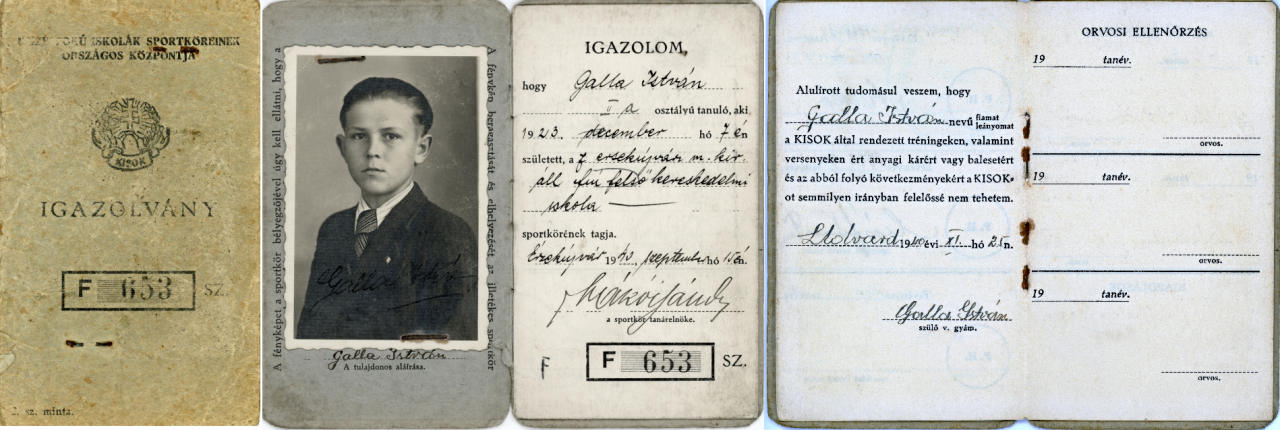 KÖZÉPFOKÚ ISKOLÁK SPORTKÖREINEK
ORSZÁGOS KÖZPONTJA
KISOK
IGAZOLVÁNY
F 653 SZ.
2. sz. minta.
A fényképet a sportkör bélyegzőjével úgy kell ellátni, hogy a
A fénykép beragasztását és elhelyezését az illetékes sportkör
Galla István
Galla István
A tulajdonos aláírása.
IGAZOLOM,
hogy Galla István
II a osztályú tanuló, aki
1923. december hó 7 én
született, a z érsekújvári m. kir.
áll fiú felső kereskedelmi
iskola
sportkörének tagja.
Érsekújvár 1940, szeptember hó 15 én.
a sportkör tanárelnöke.
F
F 653 SZ.
Alulírott tudomásul veszem, hogy
Galla István nevű fiamat
leányomat
a KISOK által rendezett tréningeken, valamint
versenyeken ért anyagi kárért vagy balesetért
és az abból folyó következményekért a KISOK-
ot semmilyen irányban felelőssé nem tehetem.
Udvard 1940 évi XI. hó 25 n.
Galla István
szülő v. gyám.
ORVOSI ELLENŐRZÉS
19 tanév.
orvos.
19 tanév.
orvos.
19 tanév.
orvos.